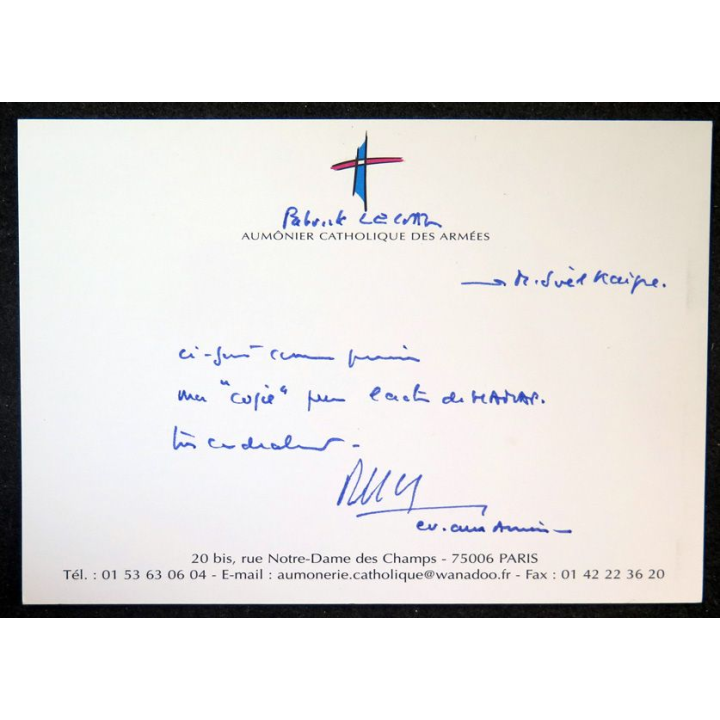 Patrick LE GAL
AUMÔNIER CATHOLIQUE DES ARMÉES
→ M. Joël Kaigre.
ci-joint comme promis
ma "copie" pour
très cordialement -
ev. aux Armées -
20 bis, rue Notre-Dame des Champs - 75006 PARIS
Tél. : 01 53 63 06 04 - E-mail : aumonerie.catholique@wanadoo.fr - Fax : 01 42 22 36 20